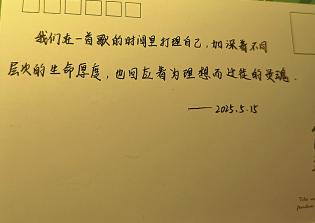 我们在一首歌的时间里打理自己，加深着不同
层次的生命厚度，也回应着为理想而迁徙的灵魂.
——2025.5.15